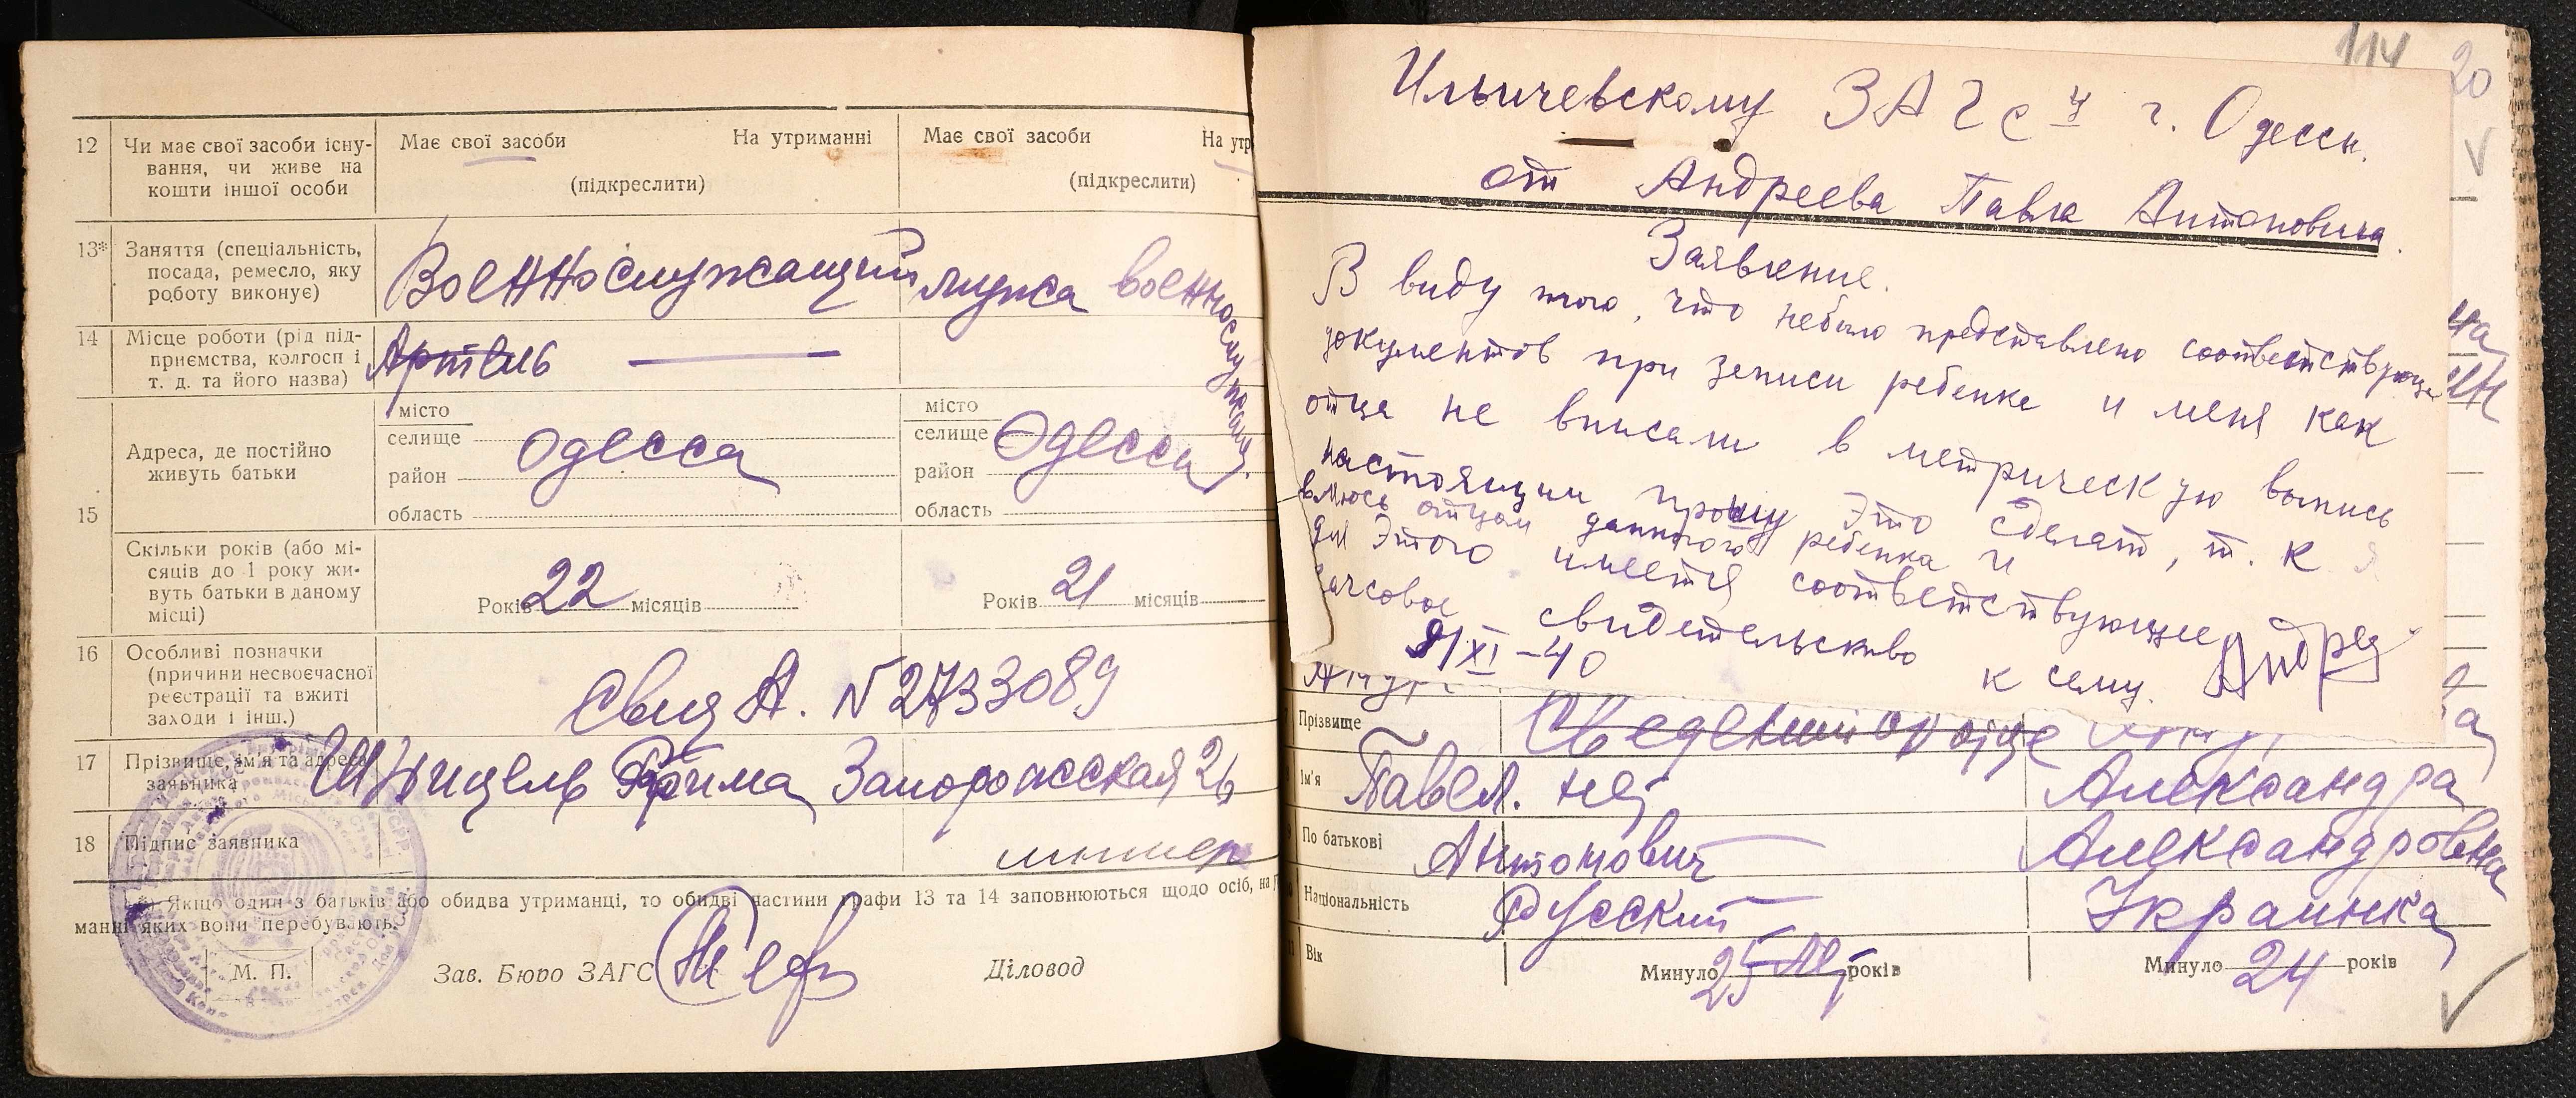 12 Чи має свої засоби існу-
вання, чи живе на
кошти іншої особи
Має свої засоби На утриманні
(підкреслити)
Має свої засоби На утр
(підкреслити)
13* Заняття (спеціальність,
посада, ремесло, яку
роботу виконує)
Военнослужащий
мужа военнослужащ.
14 Місце роботи (рід під-
приємства, колгосп і
т. д. та його назва)
Артель
15 Адреса, де постійно
живуть батьки
місто
селище
район
область
Одесса
місто
селище
район
область
Одесса
Скільки років (або мі-
сяців до 1 року жи-
вуть батьки в даному
місці)
Років 22 місяців
Років 21 місяців
16 Особливі позначки
(причини несвоєчасної
реєстрації та вжиті
заходи і інш.)
Свид А. N 2733089
17 Прізвище, ім'я та адреса
заявника
Шницель Фрима Запорожская 26
18 Підпис заявника
*) Якщо один з батьків або обидва утриманці, то обидві частини графи 13 та 14 заповнюються щодо осіб, на
манні яких вони перебувають.
М. П. Зав. Бюро ЗАГС Діловод
114
20
Ильичевскому ЗАГСу г. Одессы.
от Андреева Павла Антоновича.
Заявление.
В виду того, что небыло представлено соответствующ
документов при записи ребенка и меня как
отца не вписали в метрическую выпись
настоящим прошу это сделат, т. к я
вляюсь отцом данного ребенка и
для этого имеется соответствующее
загсовое свидетельсктво к сему.
9/XI-40 Андре
Прізвище Сведений об отце
Ім'я Павел. нет Александра
По батькові Антонович Александровна
Національність Русский Украинка
11 Вік Минуло 25 років Минуло 24 років